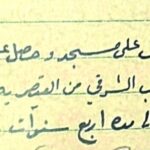 على مسجد و حصل
الشرقي من القيصريه
مده اربع سنوات